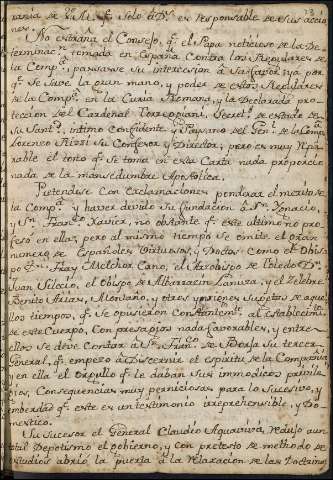 naria de S.M. q.e solo à D.s es responsable de sus accio
nes.
No estraña el Consejo, q.e el Papa noticioso de la De
terminac.n tomada en España contra los Regulares de
la Comp.a pasase su intercesion à su favor, ya por
q.e se save la gran mano, y poder de estos Regulares
de la Comp.a en la Curia Romana, y la declarada pro
teccion del Cardenal Torregiani, Secret.o de estado de
su Sant.d intimo Confidente y Paysano del Gen.l de la Comp.a
Lorenzo Ricci su Confesor y Director; pero es muy repa
rable el tono q.e se toma en esta Carta nada proporcio
nada de la mansedumbre Apostolica.
Pretendese con Exclamaciones ponderar el merito de la
Comp.a y haver devido su fundacion à S.n Ignacio,
y S.n Fran.co Xavier, no obstante q.e este ultimo no pro
fesó en ella; pero al mismo tiempo se omite el gran
numero de Españoles Virtuosos, y Doctos como el Obis
po Fray Melchor Cano, el Arzobispo de Toledo D.n
Juan Siliceo, el Obispo de Albarracin Lanuza, y el Zelebre
Benito Arias Montano, y otros insignes sujetos de aque
llos tiempos, q.e se opusieron Constantem.te al establecim.to
de este Cuerpo, Con presagios nada favorables, y entre
ellos se deve Contar à S.n Fran.co de Borja su tercer
General, q.e empezó à Discernir el espiritu de la Compañia
y en ella el orgullo q.e le daban sus inmodicos privile
gios, Consecuencias muy perniciosas para lo sucesivo, y
en verdad q.e este es un testimonio irreprehensible, y Do
mestico.
Su sucesor el General Claudio Aquaviva, redujo à un
total Depotismo el gobierno, y con pretesto de methodo de
estudios abrió la puerta à la relaxacion de las Doctrinas